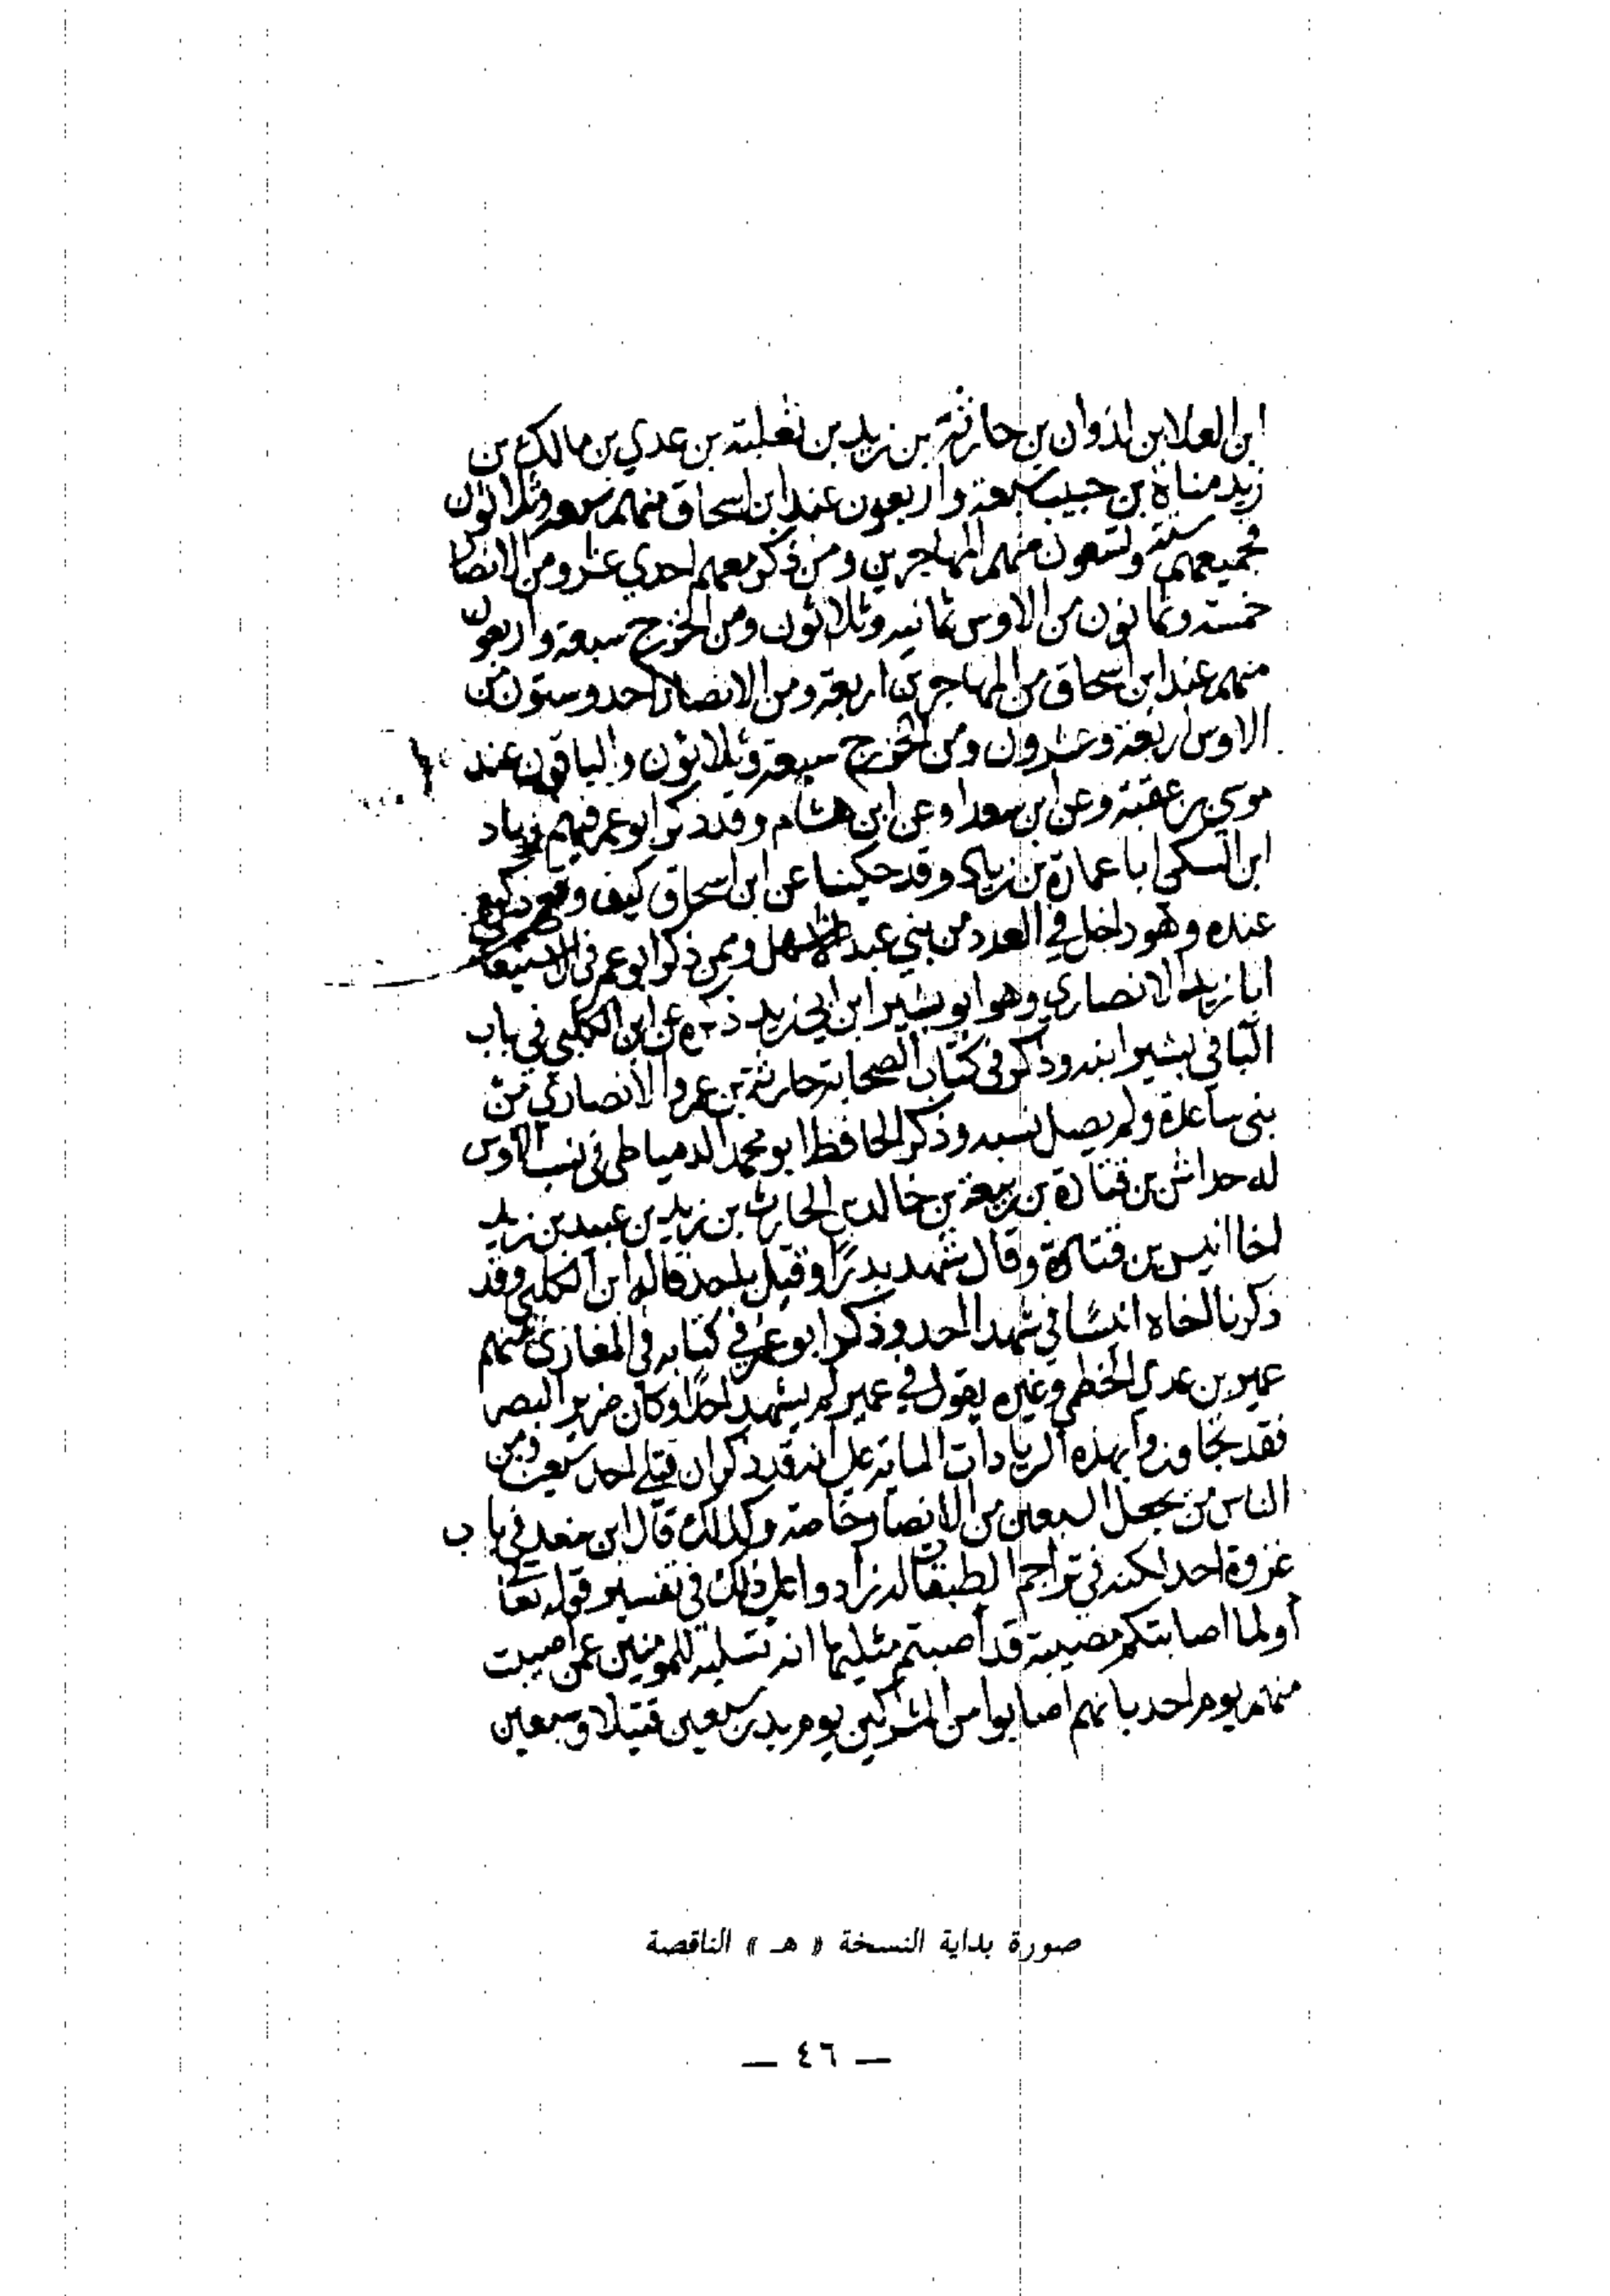 ابن العلا بن لوذان بن حارثة بن زيد بن ثعلبة بن عدي بن مالك بن
زيد مناة بن حبيب سبعة واربعون عند ابن اسحاق منهم سبعة وثلاثون
فجميعهم ستة وتسعون منهم المهاجرين ومن ذكر معهم احدي عشر ومن الانصار
خمسة وثمانون من الاوس ثمانيه وثلاثون ومن الخزرج سبعة واربعون
منهم عند ابن اسحاق من المهاجرين اربعة ومن الانصار احد وستون من
الاوس اربعة وعشرون ومن الخزرج سبعة وثلاثون والباقون عند
موسي بن عقبة وعن ابن سعد او عن ابن هشام وقد ذكر ابو عمر فيهم زياد
ابن السكن ابا عمارة بن زياد وقد حكينا عن ابن اسحاق كيف وقع ذكره
عنده وهو داخل في العدد من بني عبد الاشهل وممن ذكر ابو عمر في الاستيعاب
ابا زيد الانصاري وهو ابو بشير ابن ابي زيد ذكره عن ابن الكلبي في باب
البا في بشير ابنه وذكر في كتاب الصحابة حارثة بن عمرو الانصاري من
بني ساعدة ولم يصل نسبه وذكر الحافظ ابو محمد الدمياطي في نسب الاوس
له حداش بن قتادة بن ربيعة بن خالد بن الحارث بن زيد بن عبيد بن زيد
اخا انيس بن قتادة وقال شهد بدرًا وقتل باحد قاله ابن الكلبي وقد
ذكرنا اخاه انيسًا في شهدا احد وذكر ابو عمر في كتابه في المغازي منهم
عمير بن عدي الخطمي وغيره يقول في عمير لم يشهد احدًا وكان ضرير البصر
فقد تجاوزوا بهذه الزيادات الماية علي انه قد ذكر ان قتلي احد سبعين ومن
الناس من يجعل السبعين من الانصار خاصة وكذلك قال ابن سعد في باب
غزوة احد لكنه في تراجم الطبقات له زاد واعل ذلك في تفسير قوله تعالى
أولما اصابتكم مصيبة قد أصبتم مثليها انه تسلية للمومنين عمن أصيبت
منهم يوم احد بانهم اصابوا من المشركين يوم بدر سبعين قتيلا وسبعين
صورة بداية النسخة « هـ » الناقصة
— ٤٦ —